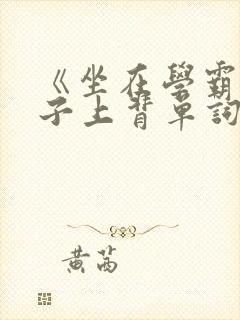 《坐在學霸
子上背單詞
黄茜